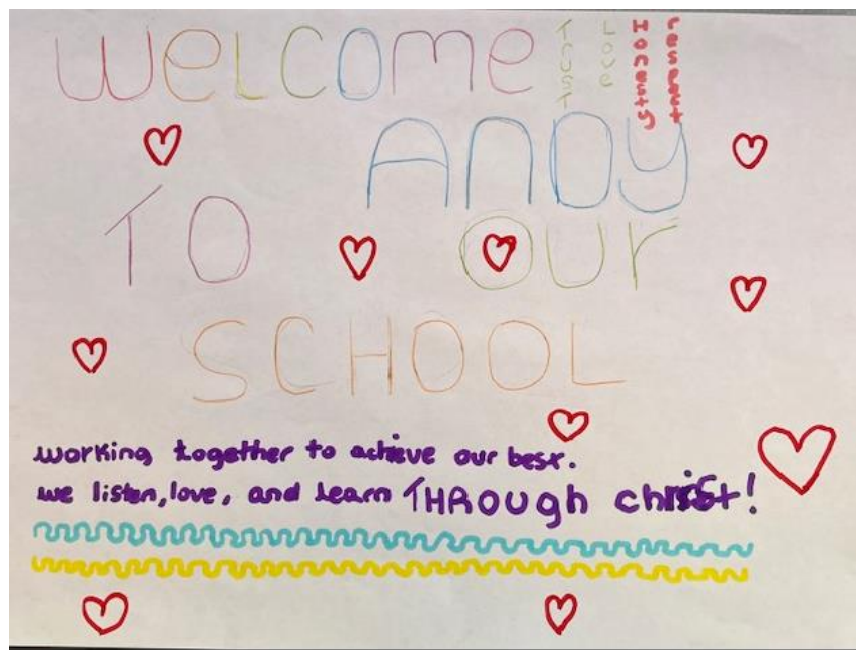 Welcome
Trust
Love
Honesty
respect
ANDy
TO our
SCHOOL
working together to achieve our best.
we listen, love, and learn THROUgh christ!